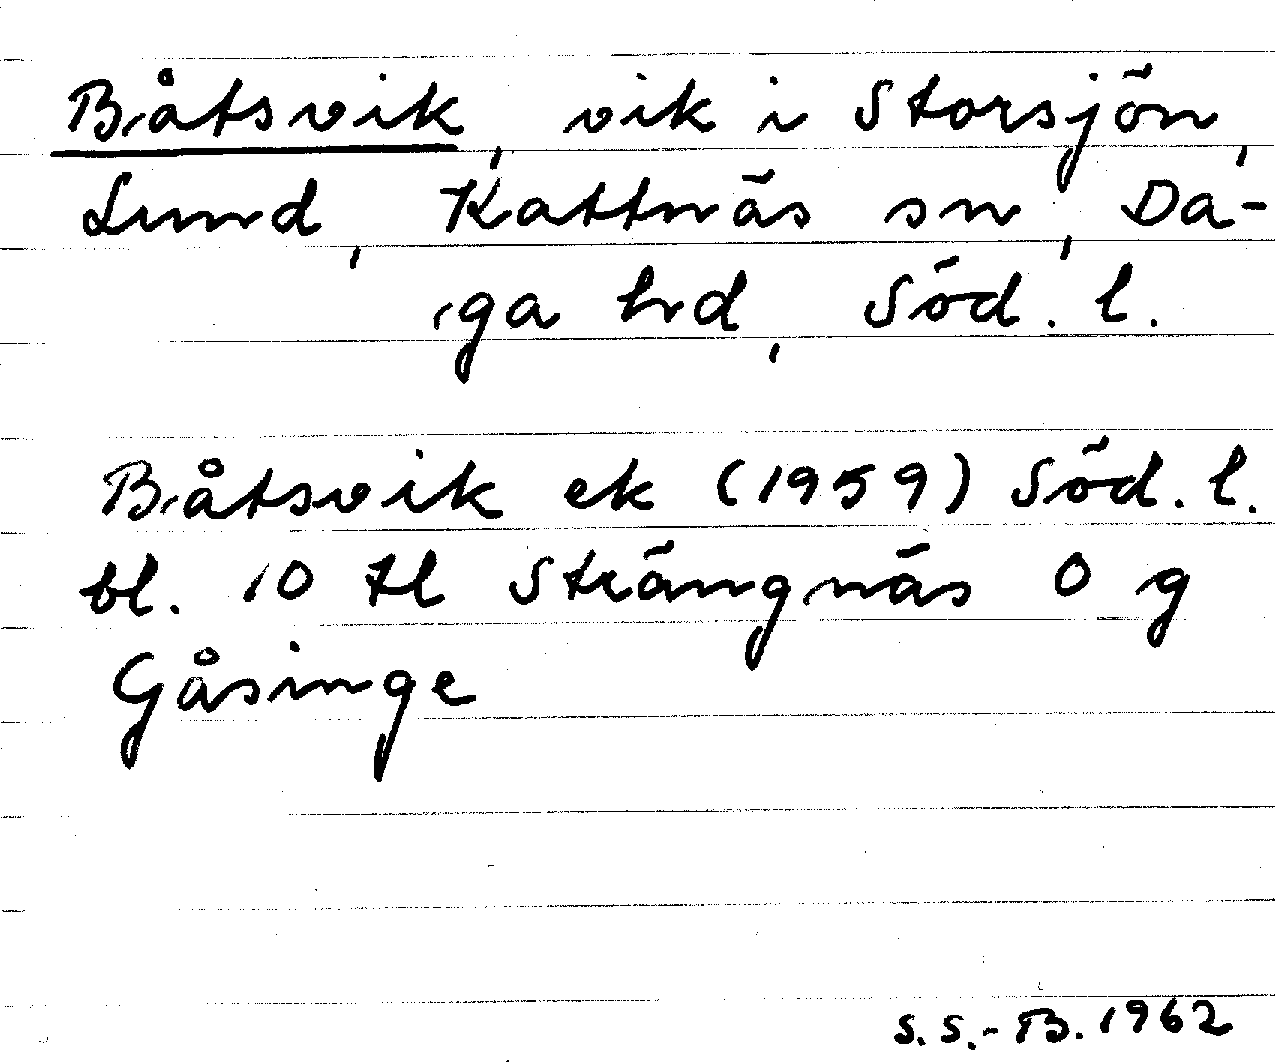 Båtsvik, vik i Storsjön,
Lund, Kattnäs sn, Da-
ga hd, Söd. l.
Båtsvik ek (1959) Söd. l.
bl. 10 tl Strängnäs O g
Gåsinge
S. S.-B. 1962